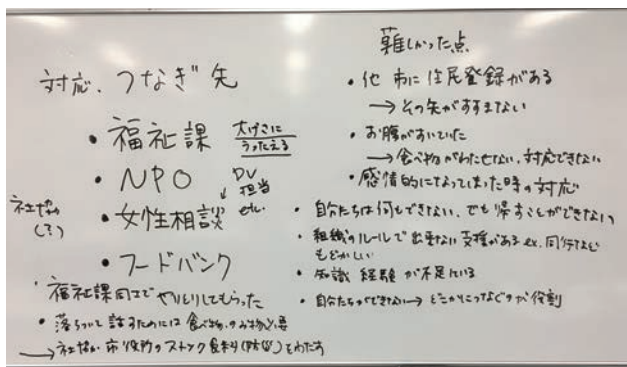 対応、つなぎ先
・福祉課 大げさにうったえる
・NPO DV
↓担当
・女性相談 etc.
社協
(?)
・フードバンク
・福祉課同士でやりとりしてもらった
・落ちついて話すためには食べ物、のみ物必要
→社協か市役所のストック食料(防災)をわたす
難しかった点
・他市に住民登録がある
→その先がすすまない
・お腹がすいていた
→食べ物がわたせない、対応できない
・感情的になってしまった時の対応
・自分たちは何もできない、でも帰すことができない
・組織のルールで出来ない支援がある ex.同行など
もどかしい
・知識 経験が不足している
・自分たちができない→どこかにつなぐのが役割